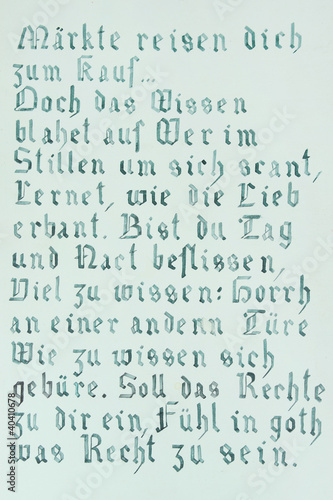 Märkte reisen dich
zum Kauf...
Doch das Wissen
blahet auf Wer im
Stillen um sich scant,
Lernet, wie die Lieb
erbant. Bist du Tag
und Nact beflissen,
Viel zu wissen: Horrh
an einer andern Türe
Wie zu wissen sich
gebüre. Soll das Rechte
zu dir ein Fühl in goth
was Recht zu sein.